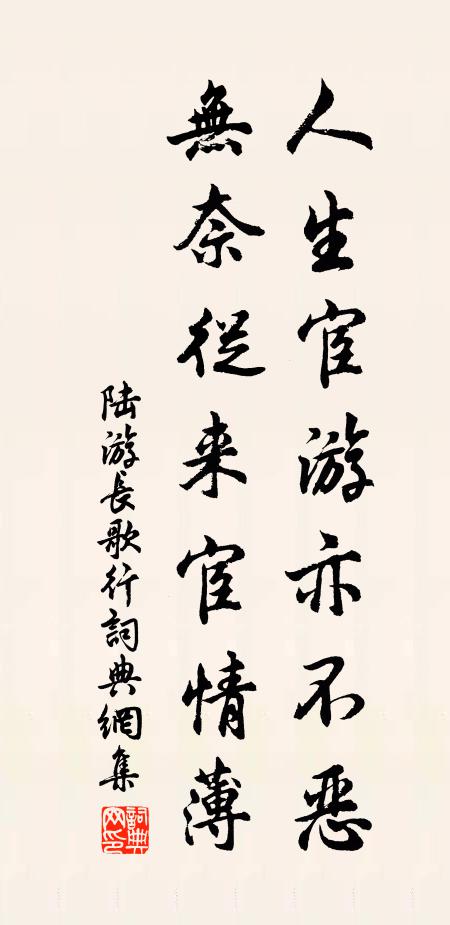 人生宦游亦不恶
無奈從来宦情薄
陆游長歌行詞典網集
詞典網印